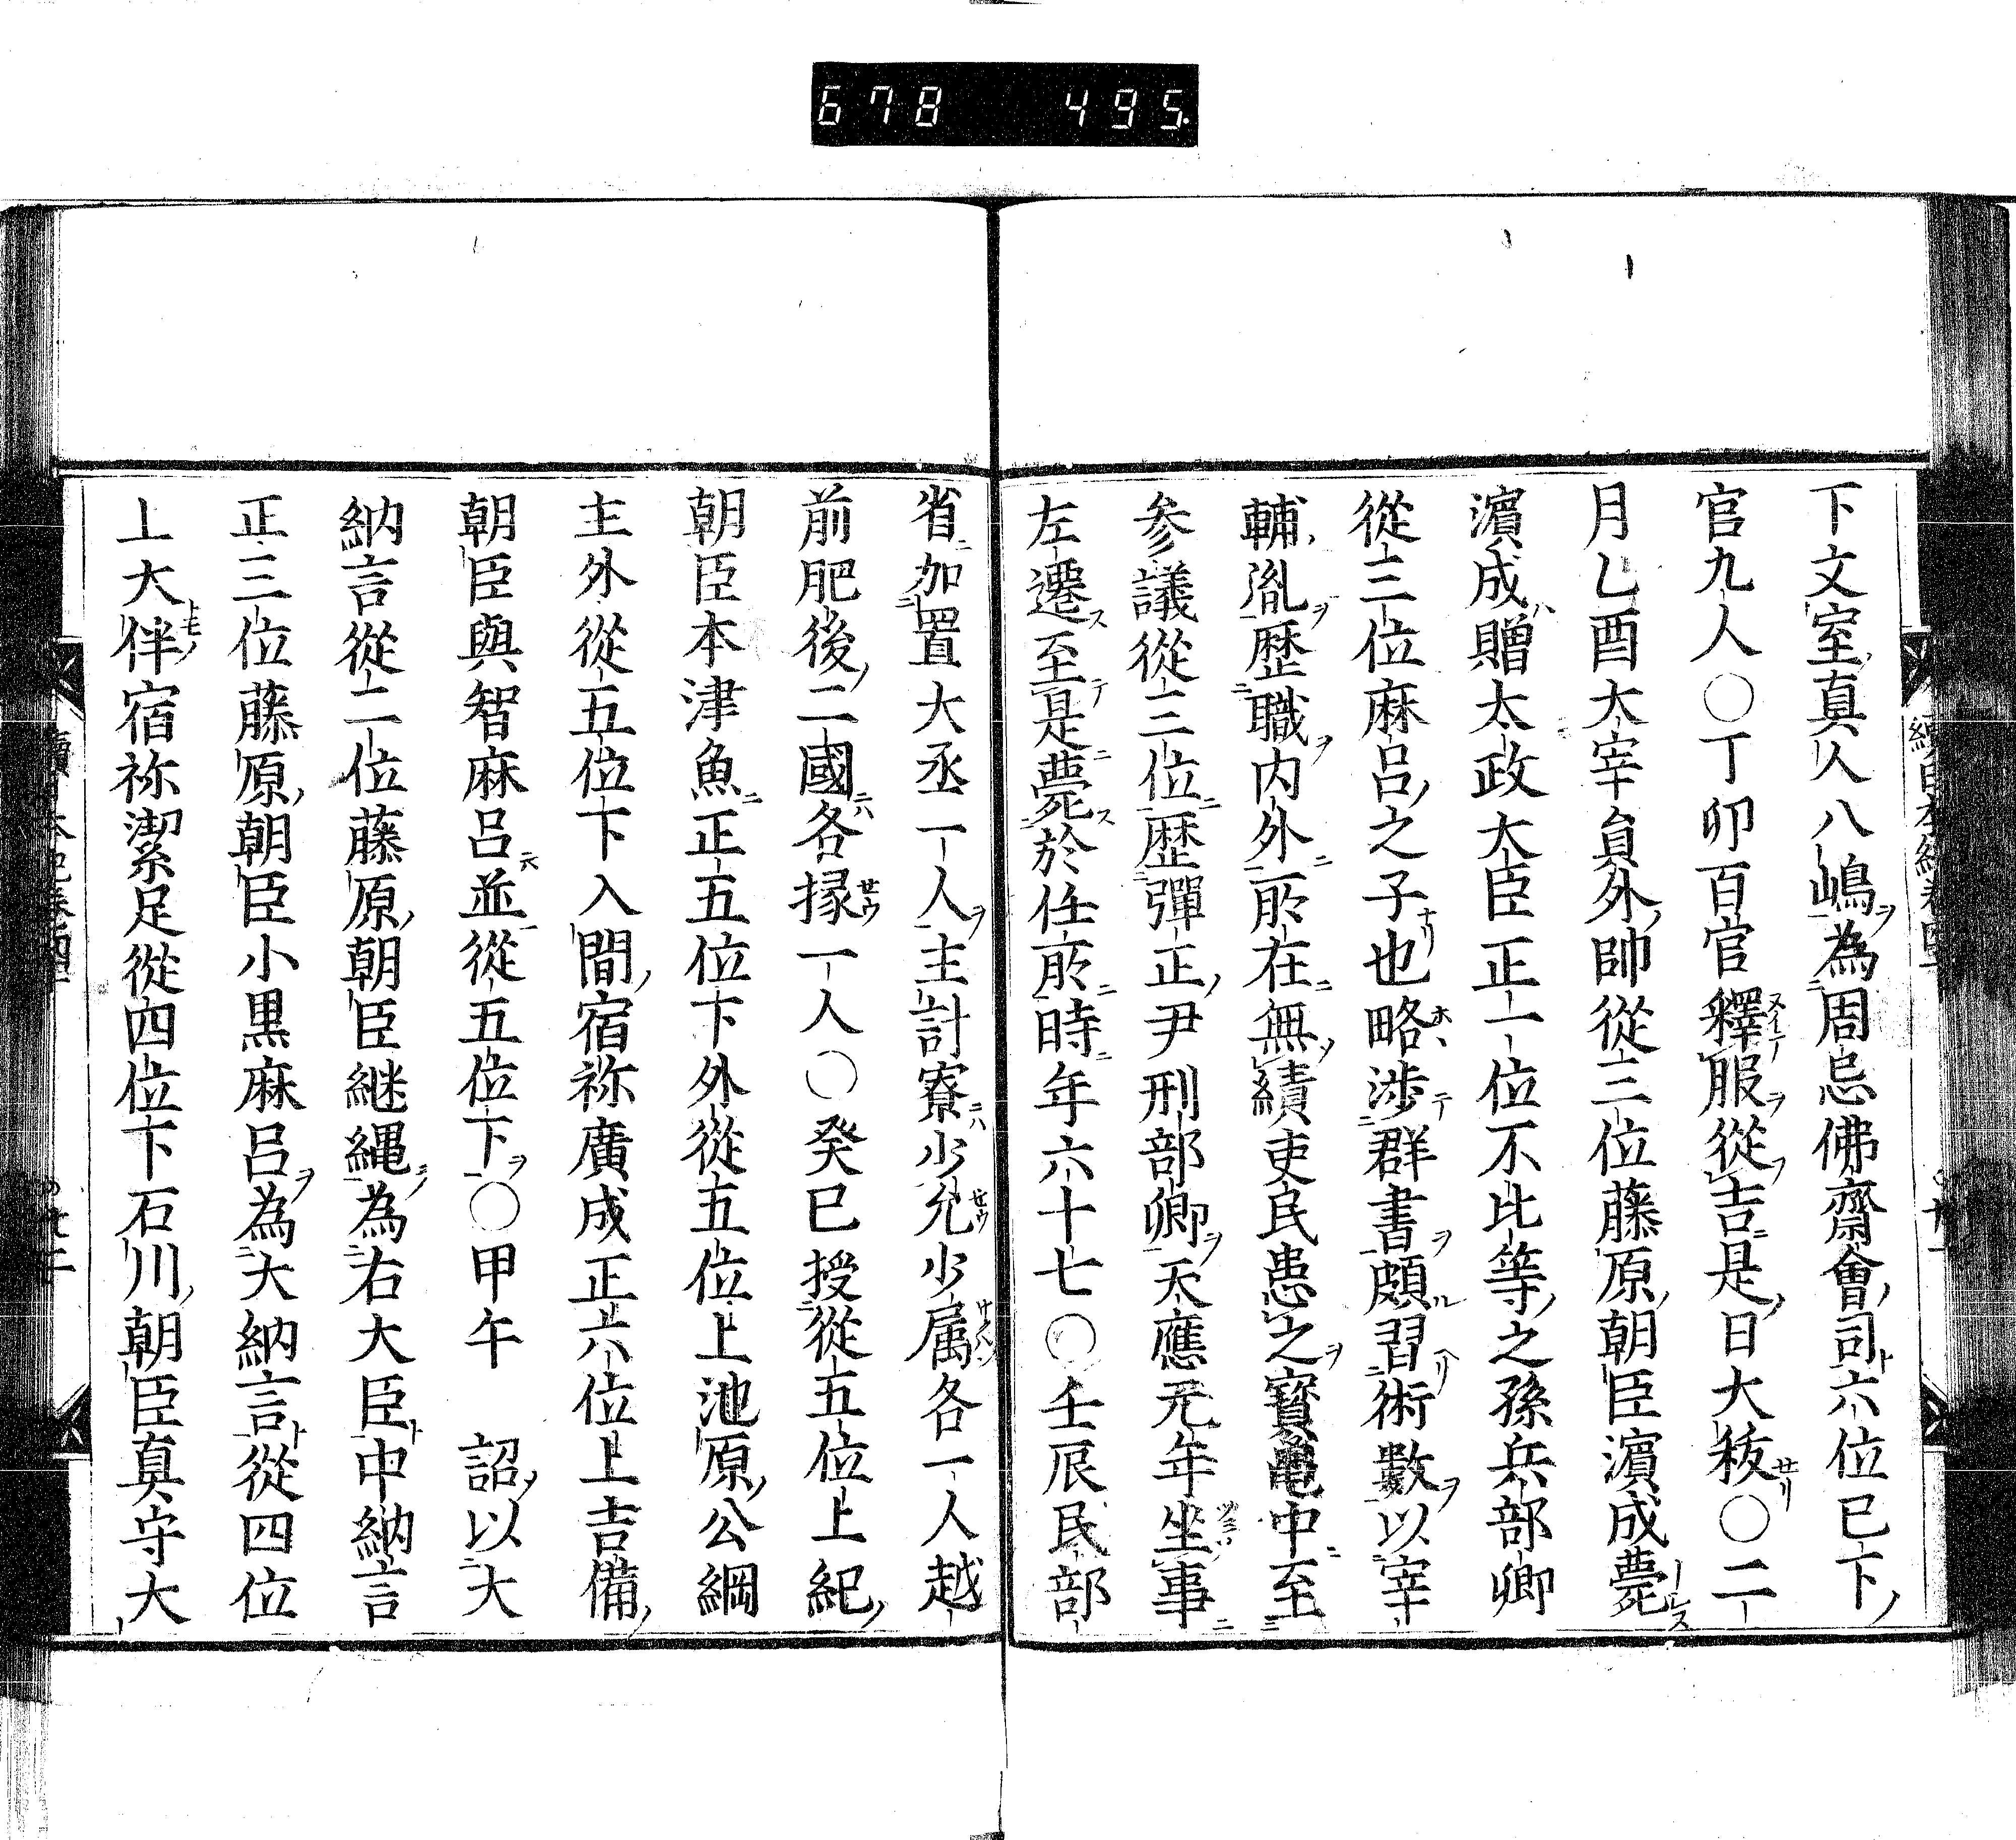 678 495
下文室真人八嶋為周忌佛齋會司六位已下
官九人○丁卯百官釋服從吉是日大秡○二
月乙酉大宰貟外帥從三位藤原朝臣濵成薨
濵成贈太政大臣正一位不比等之孫兵部卿
從三位麻呂之子也略涉群書頗習術數以宰
輔胤歷職内外所在無績吏民患之寳龜中至
参議從三位歷彈正尹刑部卿天應元年坐事
左遷至是薨於任所時年六十七○壬辰民部
省加置大丞一人主計寮少允少属各一人越
前肥後二國各掾一人○癸巳授從五位上紀
朝臣本津魚正五位下外從五位上池原公綱
主外從五位下入間宿祢廣成正六位上吉備
朝臣與智麻呂並從五位下○甲午　詔以大
納言從二位藤原朝臣継縄為右大臣中納言
正三位藤原朝臣小黒麻呂為大納言從四位
上大伴宿祢潔足從四位下石川朝臣真守大